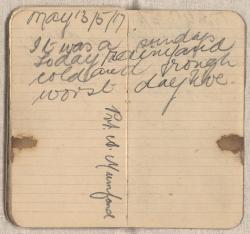 May 13/5/17
It was a sunday
today raining and
cold and rough
worst day we
Pvt. A. Mumford